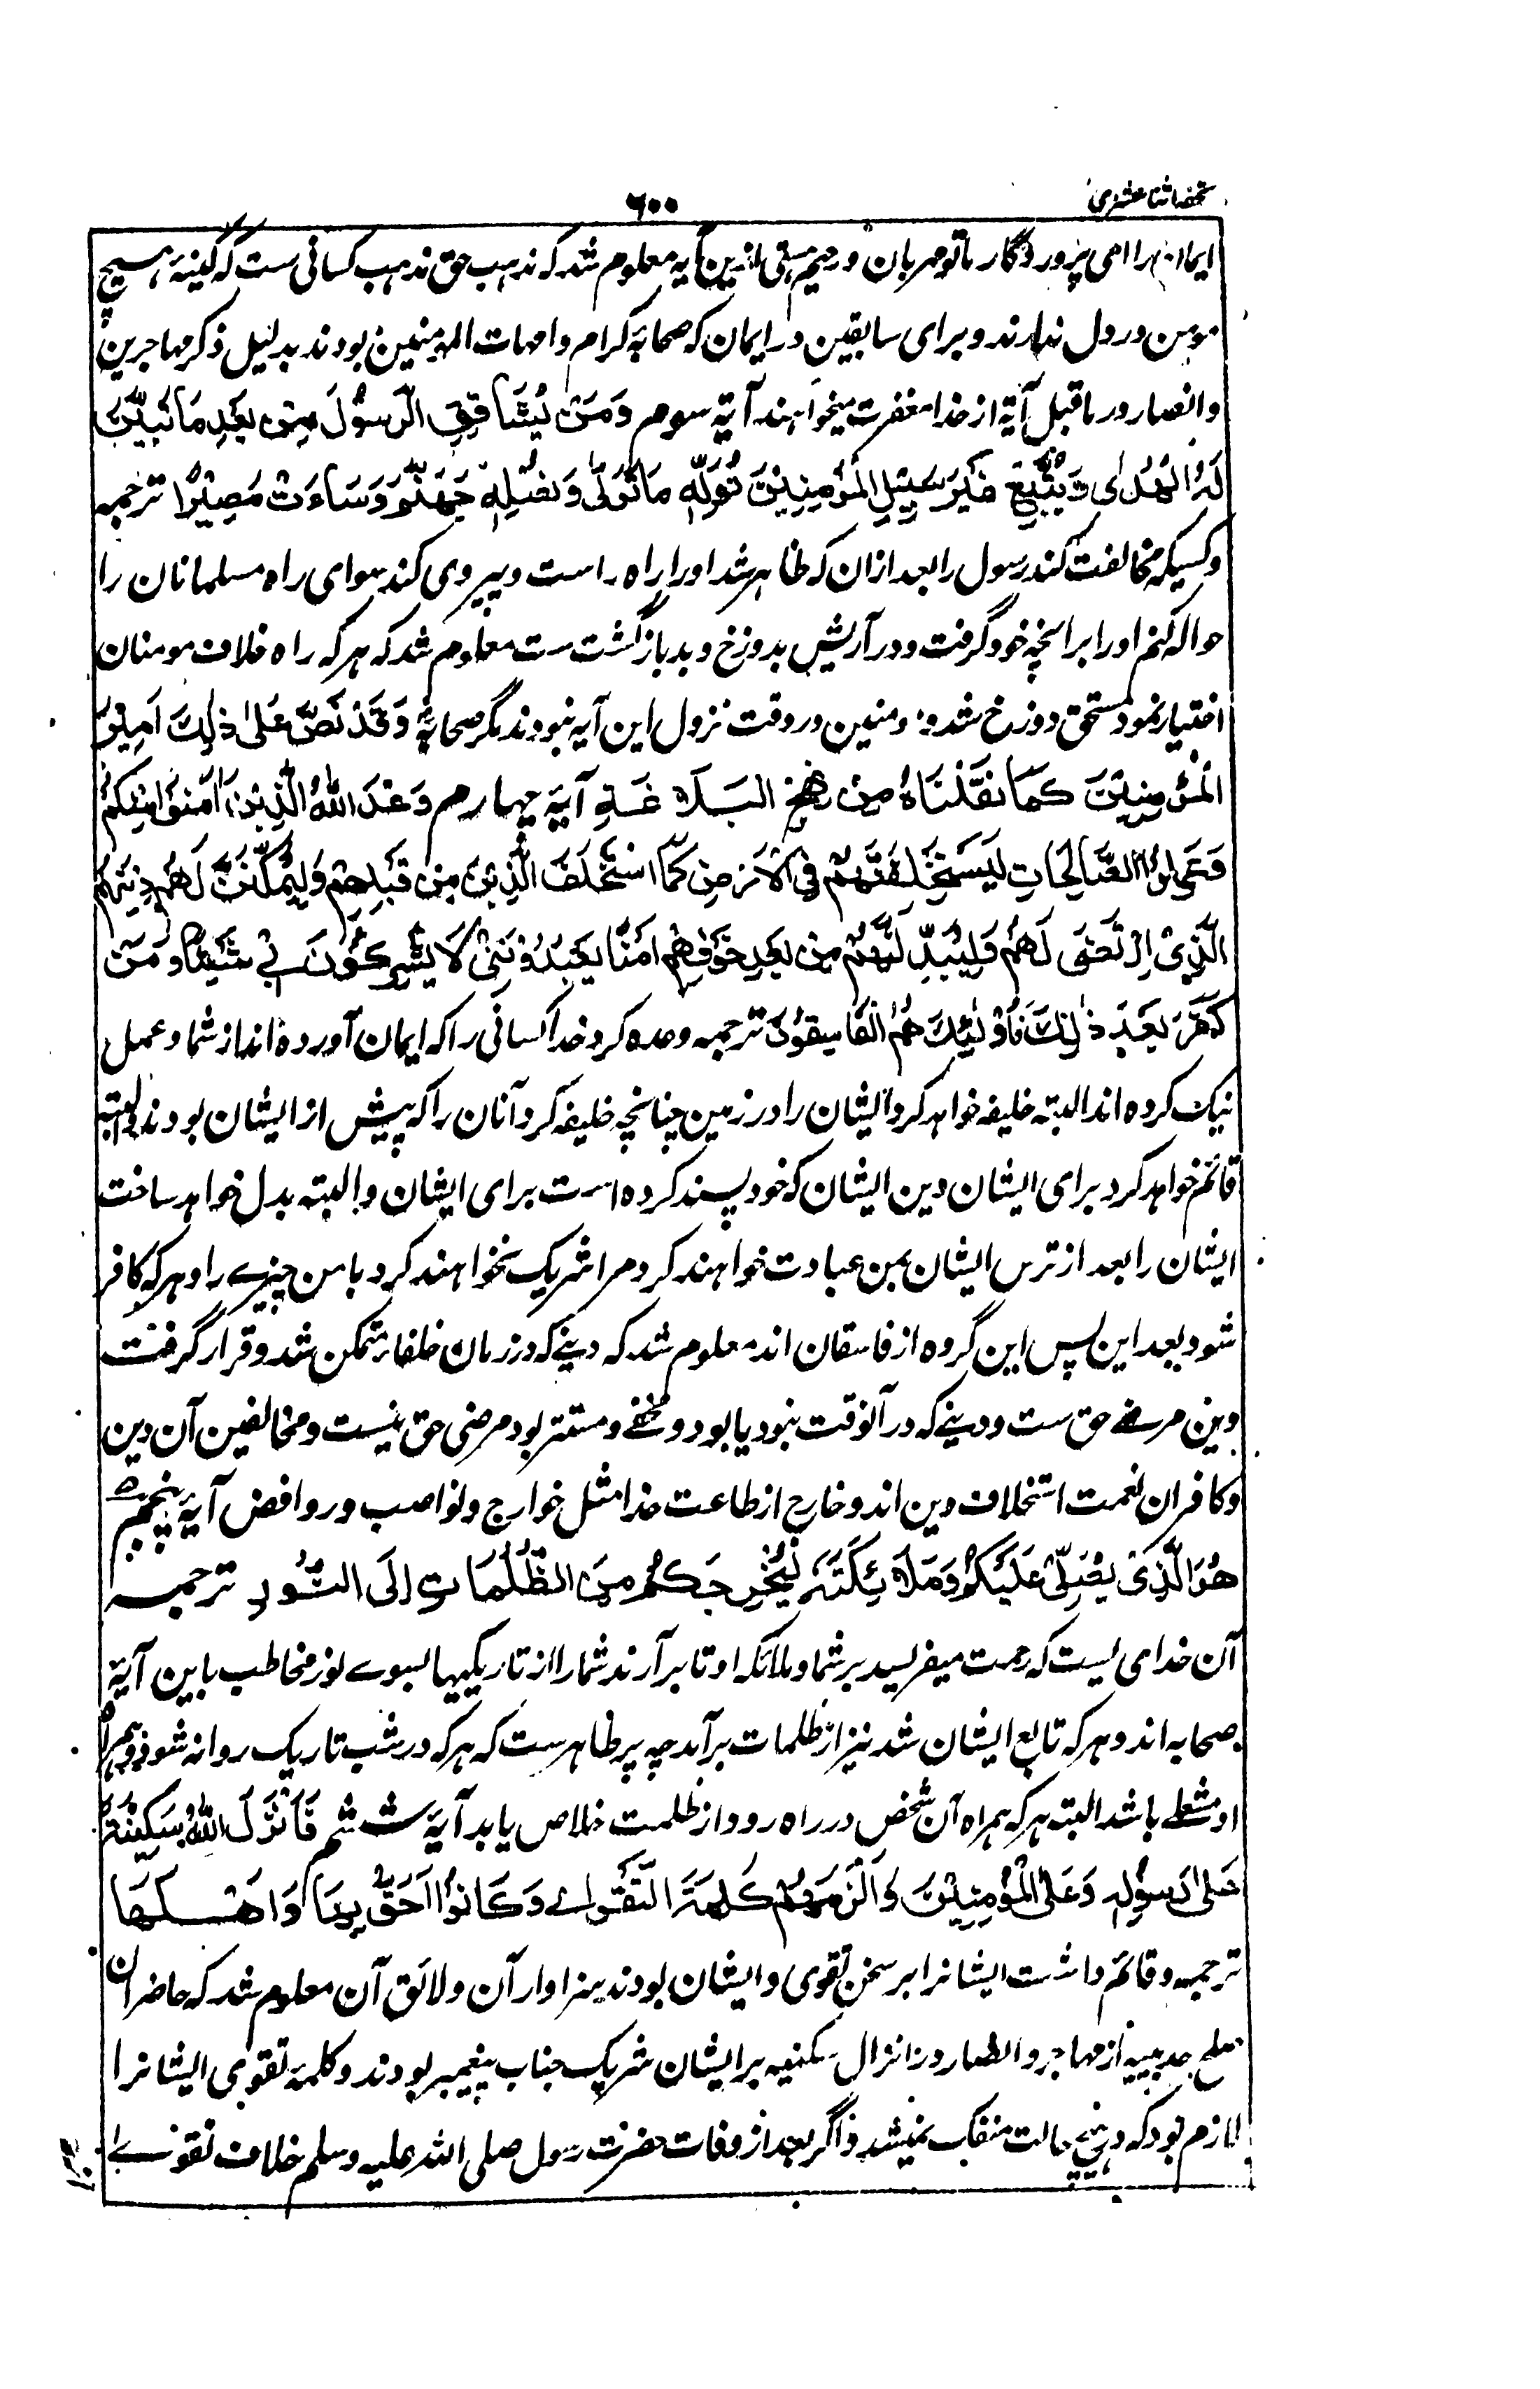 تحفہ اثنا عشری
۶۰۰
ایمان را ای پروردگار ما تو مہربان و رحیم ہستی ازین آیہ معلوم شد کہ مذہب حق مذہب کسانی ست کہ کینہٴ ہیچ
مومن در دل ندارند و برای سابقین در ایمان کہ صحابہٴ کرام و امہات المومنین بودند بدلیل ذکر مہاجرین
و انصار در ما قبل آیۃ از خدا مغفرت میخواہند آیۃ سوم وَمَنْ یُشَاقِقِ الرَّسُوْلَ مِنْ بَعْدِ مَا تَبَیَّنَ
لَهُ الْهُدٰی وَیَتَّبِعْ غَیْرَ سَبِیْلِ الْمُؤْمِنِیْنَ نُوَلِّهٖ مَا تَوَلّٰی وَنُصْلِهٖ جَهَنَّمَ وَسَاءَتْ مَصِیْرًا ترجمہ
و کسیکہ مخالفت کند رسول را بعد ازان کہ ظاہر شد او را راہ راست و پیروی کند سوای راہ مسلمانان را
حوالہ کنم او را برانچہ خود گرفت و در آریش بدوزخ و بد بازگشت ست معلوم شد کہ ہر کہ راہ خلاف مومنان
اختیار نمود مستحق دوزخ شد و مومنین در وقت نزول این آیہ نبودند مگر صحابہ وَقَدْ نَصَّ عَلٰی ذٰلِكَ اَمِیْرُ
الْمُؤْمِنِیْنَ کَمَا نَقَلْنَاهُ مِنْ نَهْجِ الْبَلَاغَةِ آیۃ چہارم وَعَدَ اللّٰهُ الَّذِیْنَ اٰمَنُوْا مِنْكُمْ
وَعَمِلُوا الصَّالِحَاتِ لَیَسْتَخْلِفَنَّهُمْ فِی الْاَرْضِ كَمَا اسْتَخْلَفَ الَّذِیْنَ مِنْ قَبْلِهِمْ وَلَیُمَكِّنَنَّ لَهُمْ دِیْنَهُمُ
الَّذِیْ ارْتَضٰی لَهُمْ وَلَیُبَدِّلَنَّهُمْ مِنْ بَعْدِ خَوْفِهِمْ اَمْنًا یَعْبُدُوْنَنِیْ لَا یُشْرِكُوْنَ بِیْ شَیْئًا وَمَنْ
كَفَرَ بَعْدَ ذٰلِكَ فَاُولٰئِكَ هُمُ الْفَاسِقُوْنَ ترجمہ وعدہ کرد خدا کسانی را کہ ایمان آوردہ اند از شما و عمل
نیک کردہ اند البتہ خلیفہ خواہد کرد ایشان را در زمین چنانچہ خلیفہ کرد آنان را کہ پیش از ایشان بودند و البتہ
قائم خواہد کرد برای ایشان دین ایشان کہ خود پسند کردہ است برای ایشان و البتہ بدل خواہد ساخت
ایشان را بعد از ترس ایشان بمن عبادت خواہند کرد مرا شریک نخواہند کرد با من چیزے را و ہر کہ کافر
شود بعد این پس این گروہ از فاسقان اند معلوم شد کہ دینے کہ در زمان خلفا متمکن شد و قرار گرفت
دین مرضی حق ست و دینے کہ در آنوقت نبود یا بود و مخفے و مستتر بود مرضی حق نیست و مخالفین آن دین
و کافران نعمت استخلاف دین اند و خارج از طاعت خدا مثل خوارج و نواصب و روافض آیۃ پنجم
هُوَ الَّذِیْ یُصَلِّیْ عَلَیْكُمْ وَمَلَائِكَتُهٗ لِیُخْرِجَكُمْ مِنَ الظُّلُمَاتِ اِلَی النُّوْرِ ترجمہ
آن خدای ست کہ رحمت میفرستد بر شما و ملائکہ او تا بر آرند شما را از تاریکیہا بسوے نور مخاطب باین آیۃ
صحابہ اند و ہر کہ تابع ایشان شد نیز از ظلمات برآمد چہ پر ظاہر ست کہ ہر کہ در شب تاریک روانہ شود و ہمراہ
او مشعلے باشد البتہ ہر کہ ہمراہ آن شخص در راہ رود از ظلمت خلاص یابد آیۃ ششم فَاَنْزَلَ اللّٰهُ سَكِیْنَتَهٗ
عَلٰی رَسُوْلِهٖ وَعَلَی الْمُؤْمِنِیْنَ وَاَلْزَمَهُمْ كَلِمَةَ التَّقْوٰے وَكَانُوْا اَحَقَّ بِهَا وَاَهْلَهَا
ترجمہ و قائم داشت ایشانرا بر سخن تقوی و ایشان بودند سزاوار آن و لائق آن معلوم شد کہ حاضران
صلح حدیبیہ از مہاجر و انصار در انزال سکینہ بر ایشان شریک جناب پیغمبر بودند و کلمہٴ تقوی ایشانرا
لازم بود کہ در ہیچ حالت منفک نمیشد و اگر بعد از وفات حضرت رسول صلی اللہ علیہ وسلم خلاف تقوے